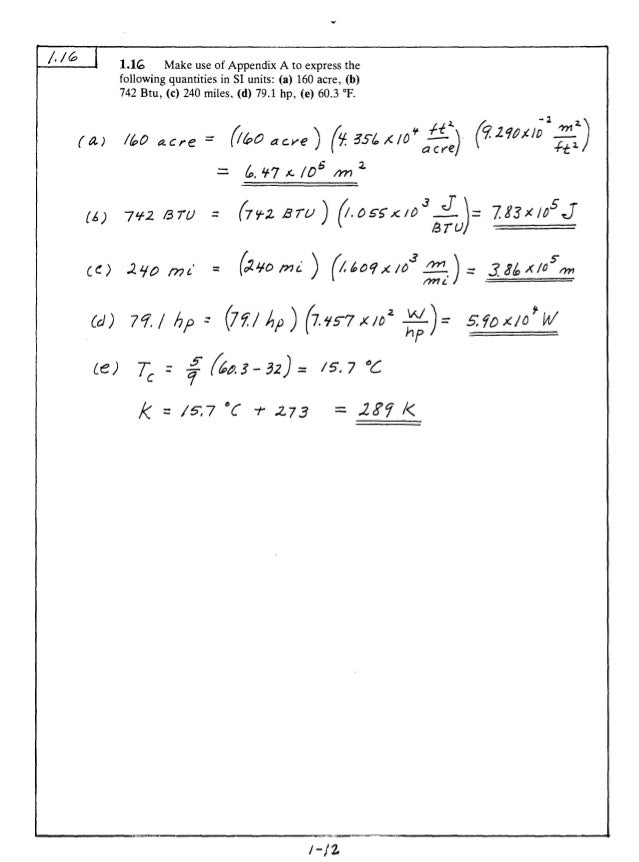 1.16
1.16 Make use of Appendix A to express the
following quantities in SI units: (a) 160 acre, (b)
742 Btu, (c) 240 miles, (d) 79.1 hp, (e) 60.3 °F.
(a) 160 acre = (160 acre) (4.356 x 10⁴ ft²/acre) (9.290 x 10⁻² m²/ft²)
= 6.47 x 10⁵ m²
(b) 742 BTU = (742 BTU) (1.055 x 10³ J/BTU) = 7.83 x 10⁵ J
(c) 240 mi = (240 mi) (1.609 x 10³ m/mi) = 3.86 x 10⁵ m
(d) 79.1 hp = (79.1 hp) (7.457 x 10² W/hp) = 5.90 x 10⁴ W
(e) T_c = 5/9 (60.3 - 32) = 15.7 °C
K = 15.7 °C + 273 = 289 K
1-12